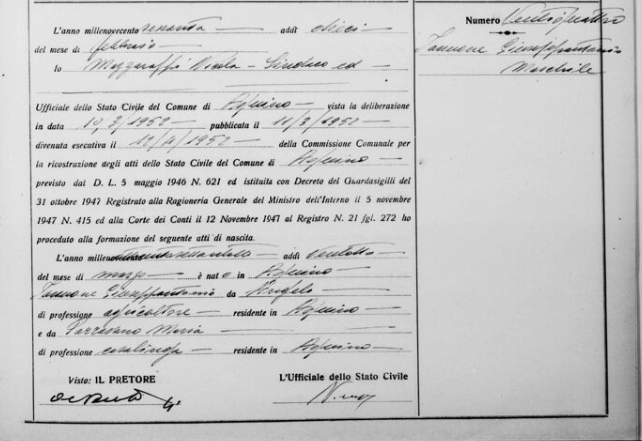 L'anno millenovecento sessanta addì dieci
del mese di febbraio
Io Nicola - Sindaco ed
Ufficiale dello Stato Civile del Comune di Aquino vista la deliberazione
in data 10/3/1952 pubblicata il 11/3/1952
divenuta esecutiva il 12/4/1952 della Commissione Comunale per
la ricostruzione degli atti dello Stato Civile del Comune di Aquino
previsto dal D. L. 5 maggio 1946 N. 621 ed istituita con Decreto del Guardasigilli del
31 ottobre 1947 Registrato alla Ragioneria General del Ministro dell'Interno il 5 novembre
1947 N. 415 ed alla Corte dei Conti il 12 Novembre 1947 al Registro N. 21 fgl. 272 ho
proceduto alla formazione del seguente atti di nascita.
L'anno addì ventotto
del mese di marzo è nato in Aquino
Iannone Giuseppantonio da Angelo
di professione agricoltore residente in Aquino
e da Maria
di professione casalinga residente in Aquino
Visto: IL PRETORE
L'Ufficiale dello Stato Civile
Numero Ventiquattro
Iannone Giuseppantonio
Maschile